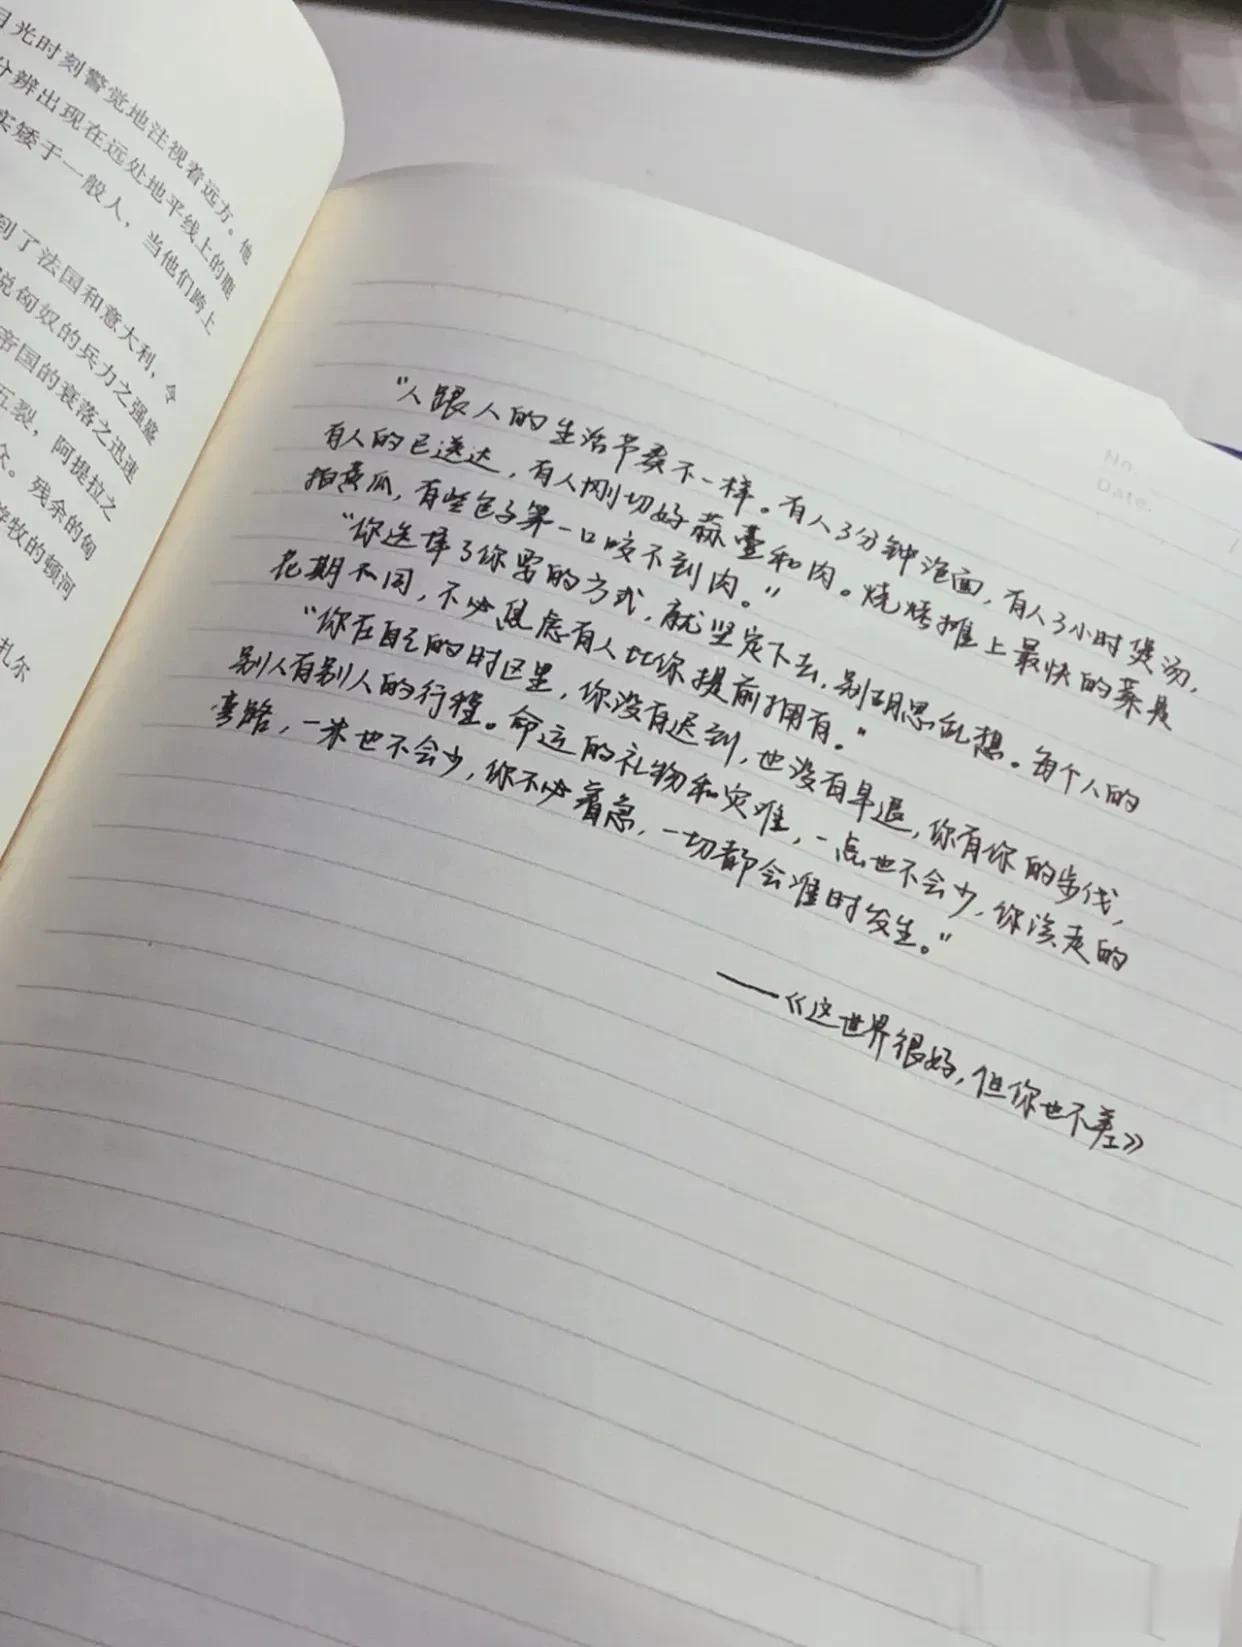 目光时刻警觉地注视着远方。他
分辨出现在远处地平线上的鹿
实矮于一般人，当他们跨上
到了法国和意大利，令
说匈奴的兵力之强盛
帝国的衰落之迅速
五裂，阿提拉之
众。残余的匈
牧的顿河
扎尔
No.
Date.
“人跟人的生活节奏不一样。有人3分钟泡面，有人3小时煲汤，
有人的已送达，有人刚切好蒜薹和肉。烧烤摊上最快的菜是
拍黄瓜，有些包子第一口咬不到肉。”
“你选择了你要的方式，就坚定下去，别胡思乱想。每个人的
花期不同，不必焦虑有人比你提前拥有。”
“你在自己的时区里，你没有迟到，也没有早退，你有你的步伐，
别人有别人的行程。命运的礼物和灾难，一点也不会少，你该走的
弯路，一米也不会少，你不必着急，一切都会准时发生。”
——《这世界很好，但你也不差》